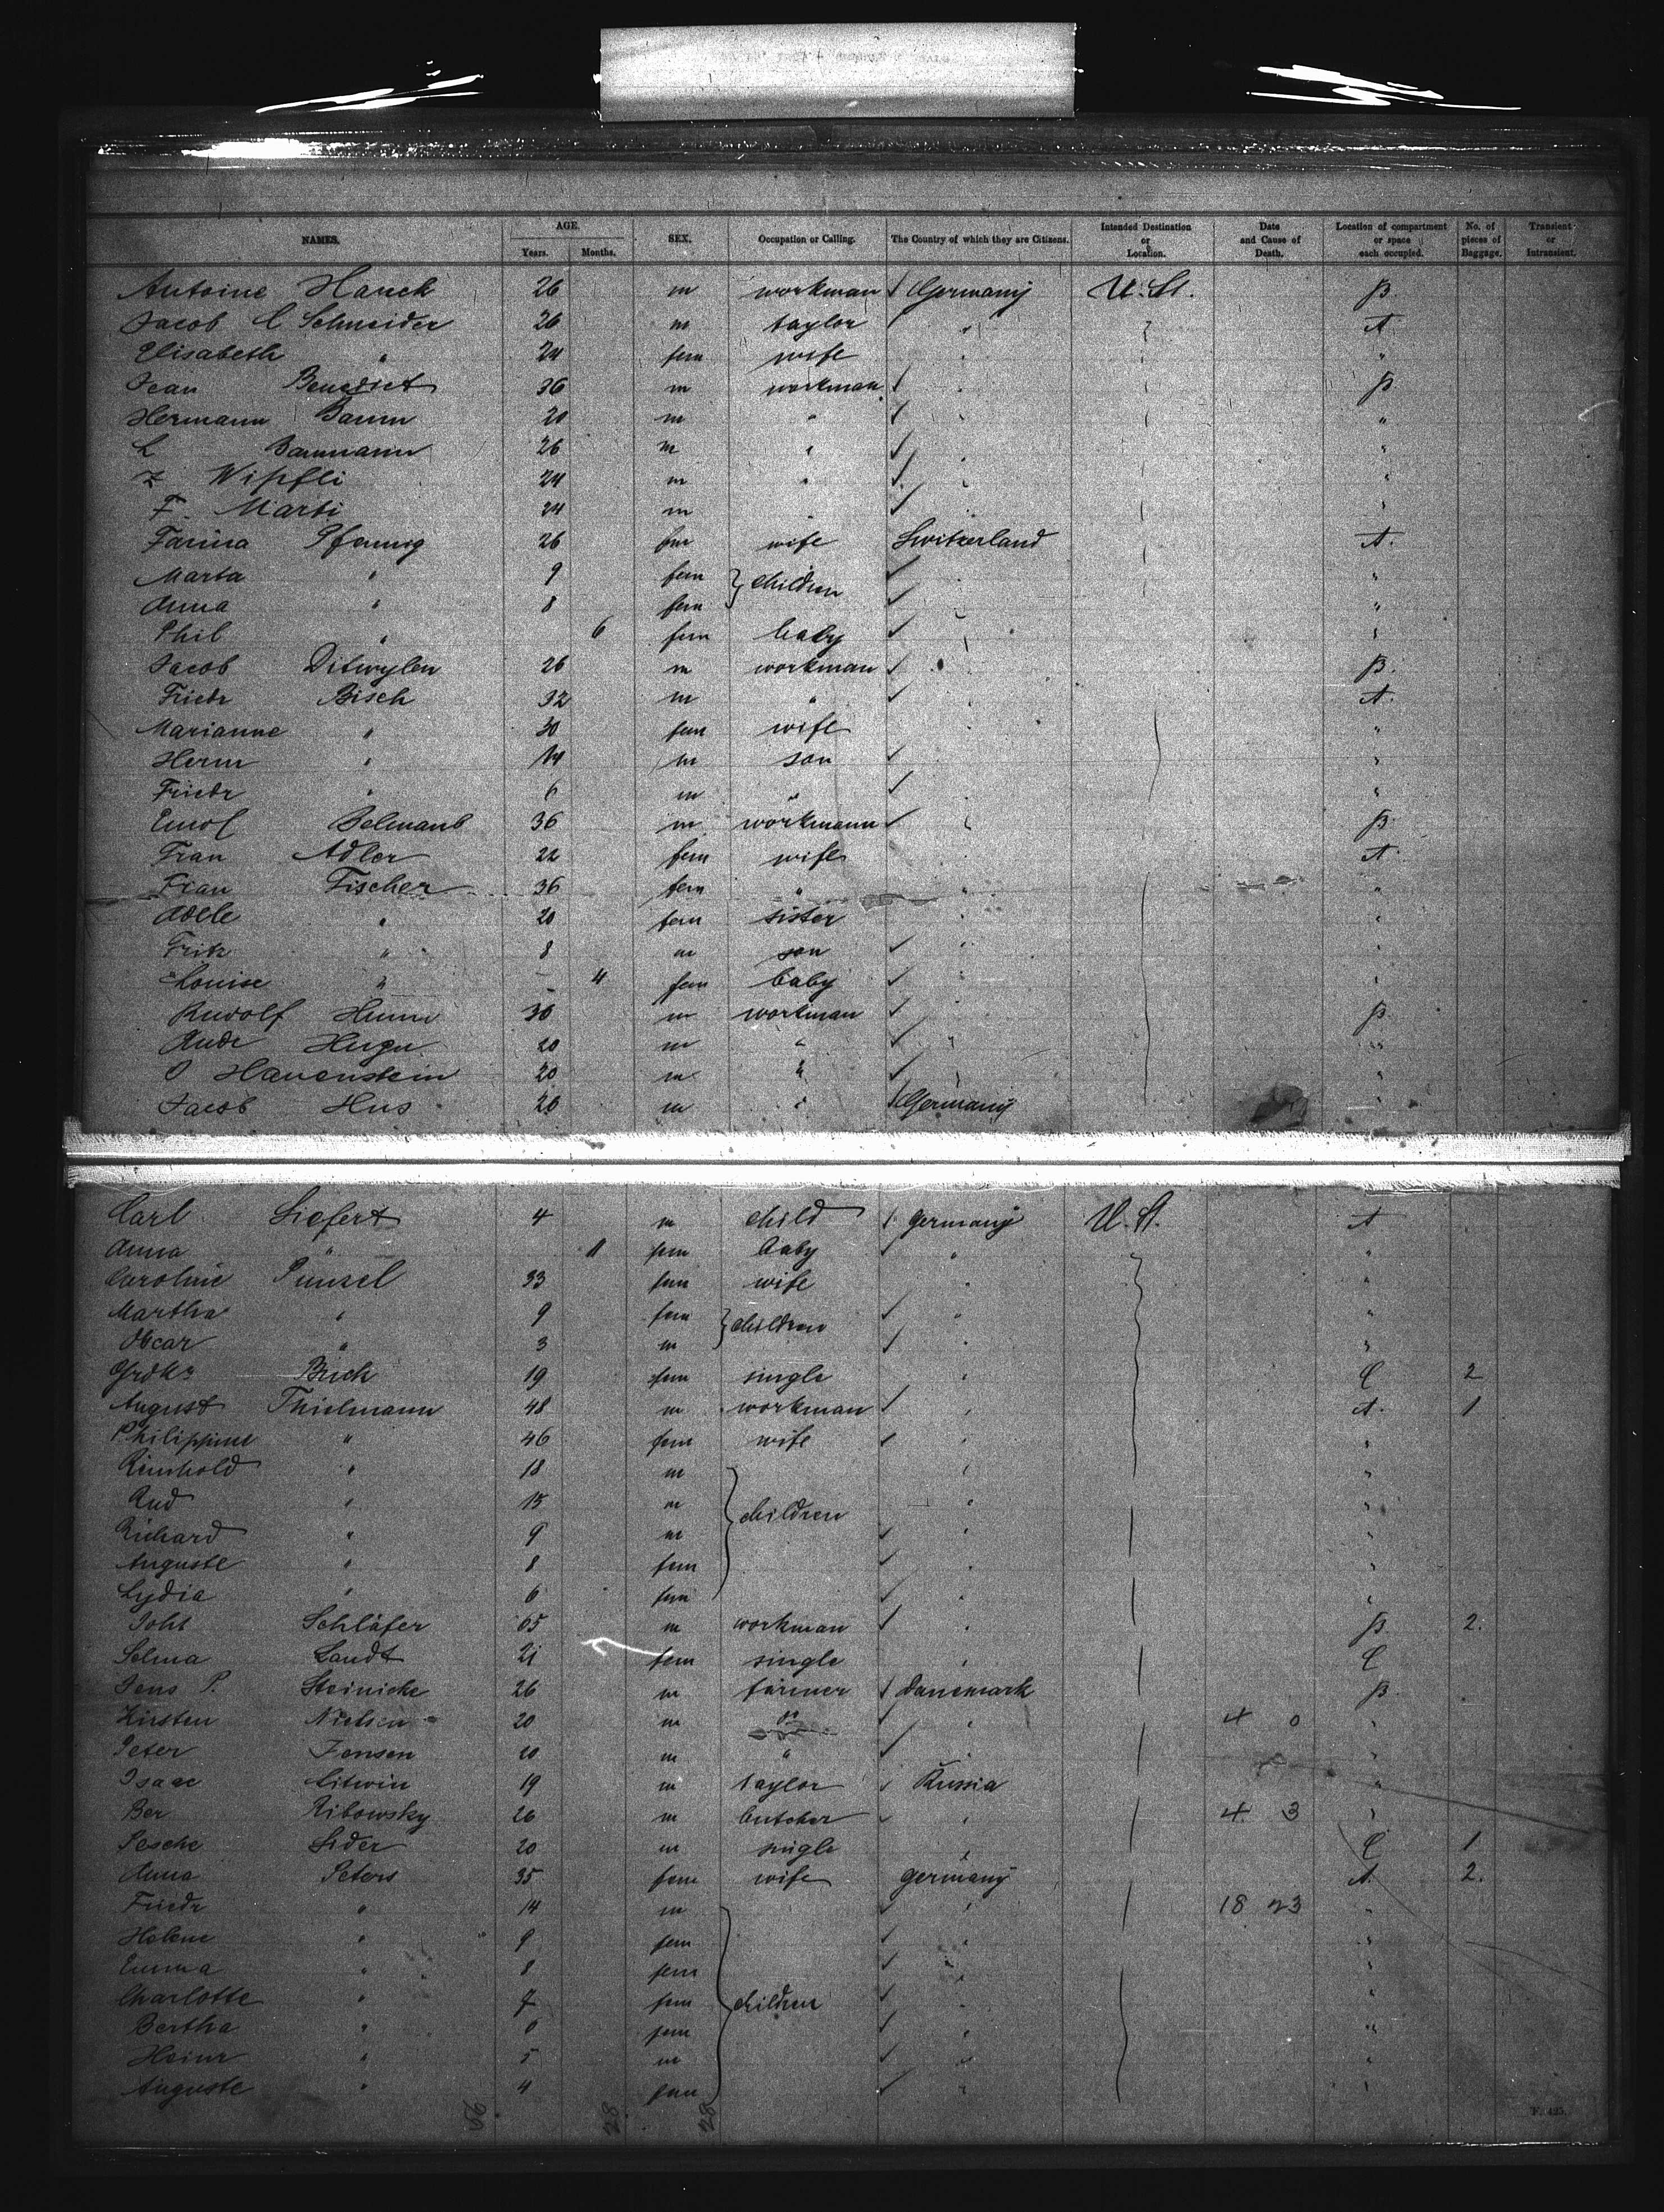 NAMES. AGE. Years. Months. SEX. Occupation or Calling. The Country of which they are Citizens. Intended Destination or Location. Date and Cause of Death. Location of compartment or space each occupied. No. of pieces of Baggage. Transient or Intransient.
Antoine Hauck 26 m workman Germany U. St. B.
Jacob C Schneider 26 m taylor " A
Elisabeth " 24 fem wife "
Jean Benedict 36 m workman B
Hermann Baum 20 m " "
L Baumann 26 m " "
Z Wipfli 24 m " "
F. Marti 24 m " "
Pfennig 26 fem wife Switzerland A.
Marta " 9 fem children "
Anna " 8 fem "
Phil " 6 fem baby "
Jacob Ditwylen 26 m workman B.
Friedr Bisch 32 m " A.
Marianne " 30 fem wife "
Herm " 14 m son "
Friedr " 6 m " "
36 m workmann B
Frau Adler 22 fem wife A
Frau Fischer 36 fem " "
Adele " 20 fem sister "
Fritz " 8 m son "
Louise " - 4 fem baby "
Rudolf 30 m workman B
20 m " "
O Hauenstein 20 m " "
Jacob Hus 20 m " Germany "
Carl Siefert 4 m child Germany U. St. A
Anna " 11 fem baby " "
Caroline Punzel 33 fem wife " "
Martha " 9 fem children " "
Oscar " 3 m "
19 fem single " C 2
August Thielmann 48 m workman " A. 1
Philippine " 46 fem wife " "
Reinhold " 18 m "
Rud " 15 m children "
Richard " 9 m "
Auguste " 8 fem "
Lydia " 6 fem "
Schläfer 65 m workman B 2.
Selma Landt 21 fem single C
Jens P. Steinicke 26 m farmer Danemark B
Kirsten Nielsen 20 m " 4 0 "
Peter Jensen 20 m " "
Isaac Litwin 19 m taylor Russia "
Ber Ribowsky 26 m butcher 4 3 "
Pesche Lider 20 m single C 1
Anna Peters 35 fem wife Germany A. 2.
Friedr " 14 m 18 23 "
Helene " 9 fem "
Emma " 8 fem "
Charlotte " 7 fem children
Bertha " 6 fem "
Heinr " 5 m "
Auguste " 4 fem "
28 28